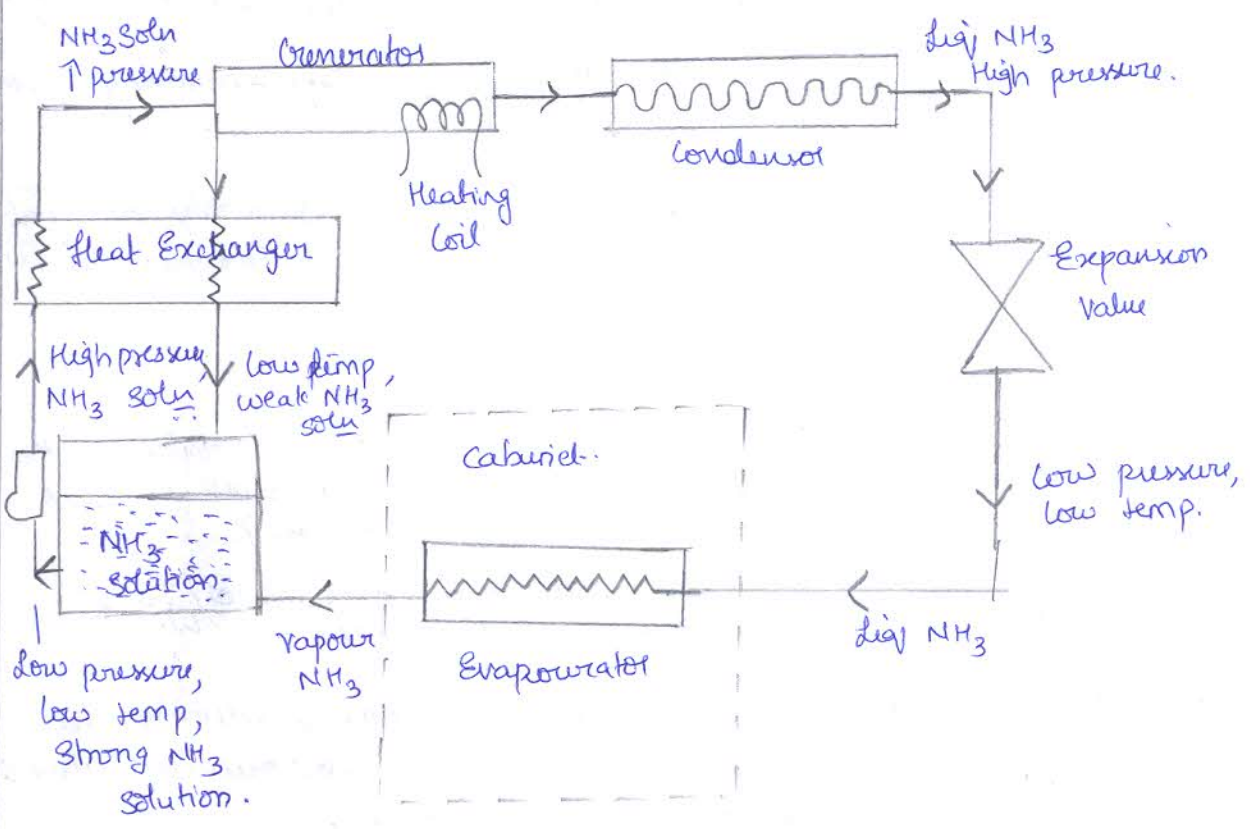 NH3 Soln
↑ pressure
Generator
Liq NH3
High pressure.
Condensor
Heating
Coil
Heat Exchanger
Expansion
Value
High pressure,
NH3 soln
Low temp,
weak NH3
soln
Cabinet.
Low pressure,
low temp.
NH3
Solution
Vapour
NH3
Evapourator
Liq NH3
Low pressure,
low temp,
Strong NH3
solution.